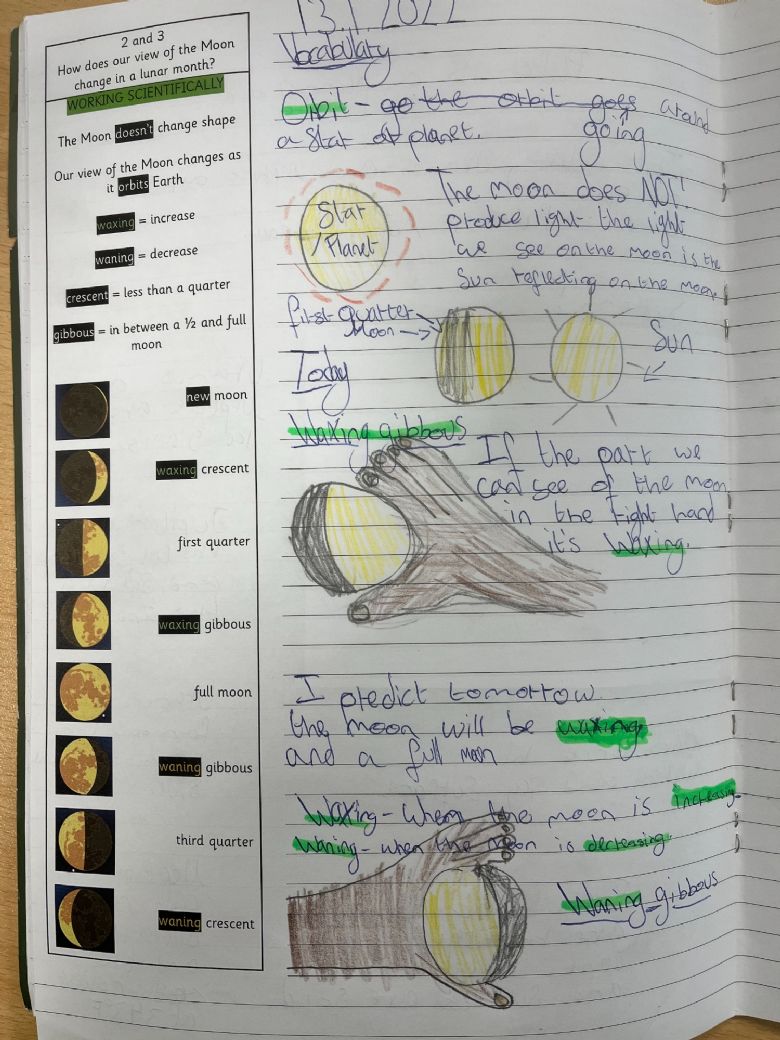 2 and 3
How does our view of the Moon
change in a lunar month?
WORKING SCIENTIFICALLY
The Moon doesn't change shape
Our view of the Moon changes as
it orbits Earth
waxing = increase
waning = decrease
crescent = less than a quarter
gibbous = in between a ½ and full
moon
new moon
waxing crescent
first quarter
waxing gibbous
full moon
waning gibbous
third quarter
waning crescent
Vocabulary
Orbit - go the orbit goes around
going
a star or planet.
Star
/Planet
The moon does NOT!
produce light the light
we see on the moon is the
Sun reflecting on the moon.
first-quarter
Moon
Sun
Today
Waxing gibbous
If the part we
can see of the moon
in the right hand
it's Waxing.
I predict tomorrow
the moon will be waxing
and a full moon
Waxing - when the moon is increasing.
Waning - when the moon is decreasing.
Waning gibbous